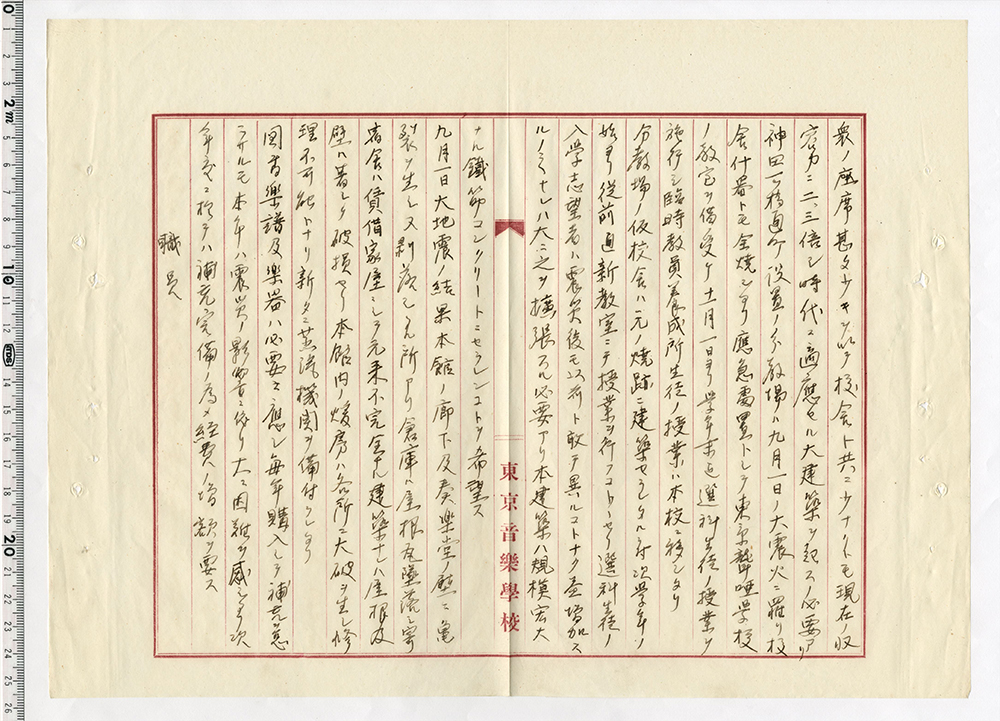 衆ノ座席甚タ少キヲ以テ校舎ト共ニ少ナクトモ現在ノ収
容力ニ二、三倍シ時代ニ適応セル大建築ヲ起スノ必要アリ
神田一ツ橋通町設置ノ分教場ハ九月一日ノ大震火ニ罹リ校
舎什器トモ全焼シタリ應急處置トシテ東京聾唖学校
ノ教室ヲ借受ケ十一月一日ヨリ学年末迄選科生徒ノ授業ヲ
施行シ臨時教員養成所生徒ノ授業ハ本校ニ移シタリ
分教場ノ仮校舎ハ元ノ焼跡ニ建築セラレタルニ付次学年ノ
始ヨリ従前通新教室ニテ授業ヲ行フコトトセリ選科生徒ノ
入学志望者ハ震災後モ以前ト敢テ異ルコトナク益増加ス
ルノミナレハ大ニ之ヲ擴張スル必要アリ本建築ハ規模宏大
ナル鐵筋コンクリートニセラレンコトヲ希望ス
九月一日大地震ノ結果本館ノ廊下及奏楽堂ノ壁ニ亀
裂ヲ生シ又剥落シタル所アリ倉庫ハ屋根瓦墜落シ寄
宿舎ハ賃借家屋ニシテ元来不完全ナル建築ナレハ屋根及
壁ハ著シク破損セリ本館内ノ煖房ハ各所ニ大破ヲ生シ修
理不可能トナリ新タニ蒸汽機関ヲ備付クルニ至リ
図書楽譜及楽器ハ必要ニ應シ毎年購入シテ補充ヲ怠
ラサルモ本年ハ震災ノ影響ニ依リ大ニ困難ヲ感シタリ次
年度ニ於テハ補充完備ノ為メ経費ノ増額ヲ要ス
職員
東京音樂學校